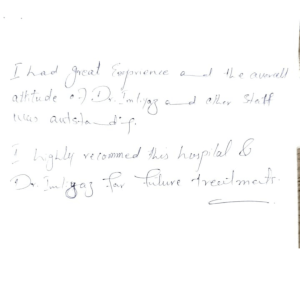 I had great Experience and the overall
attitude of Dr. Imliyaz and other staff
was outstanding.
I highly recommed this hospital &
Dr. Imliyaz for future treatments.